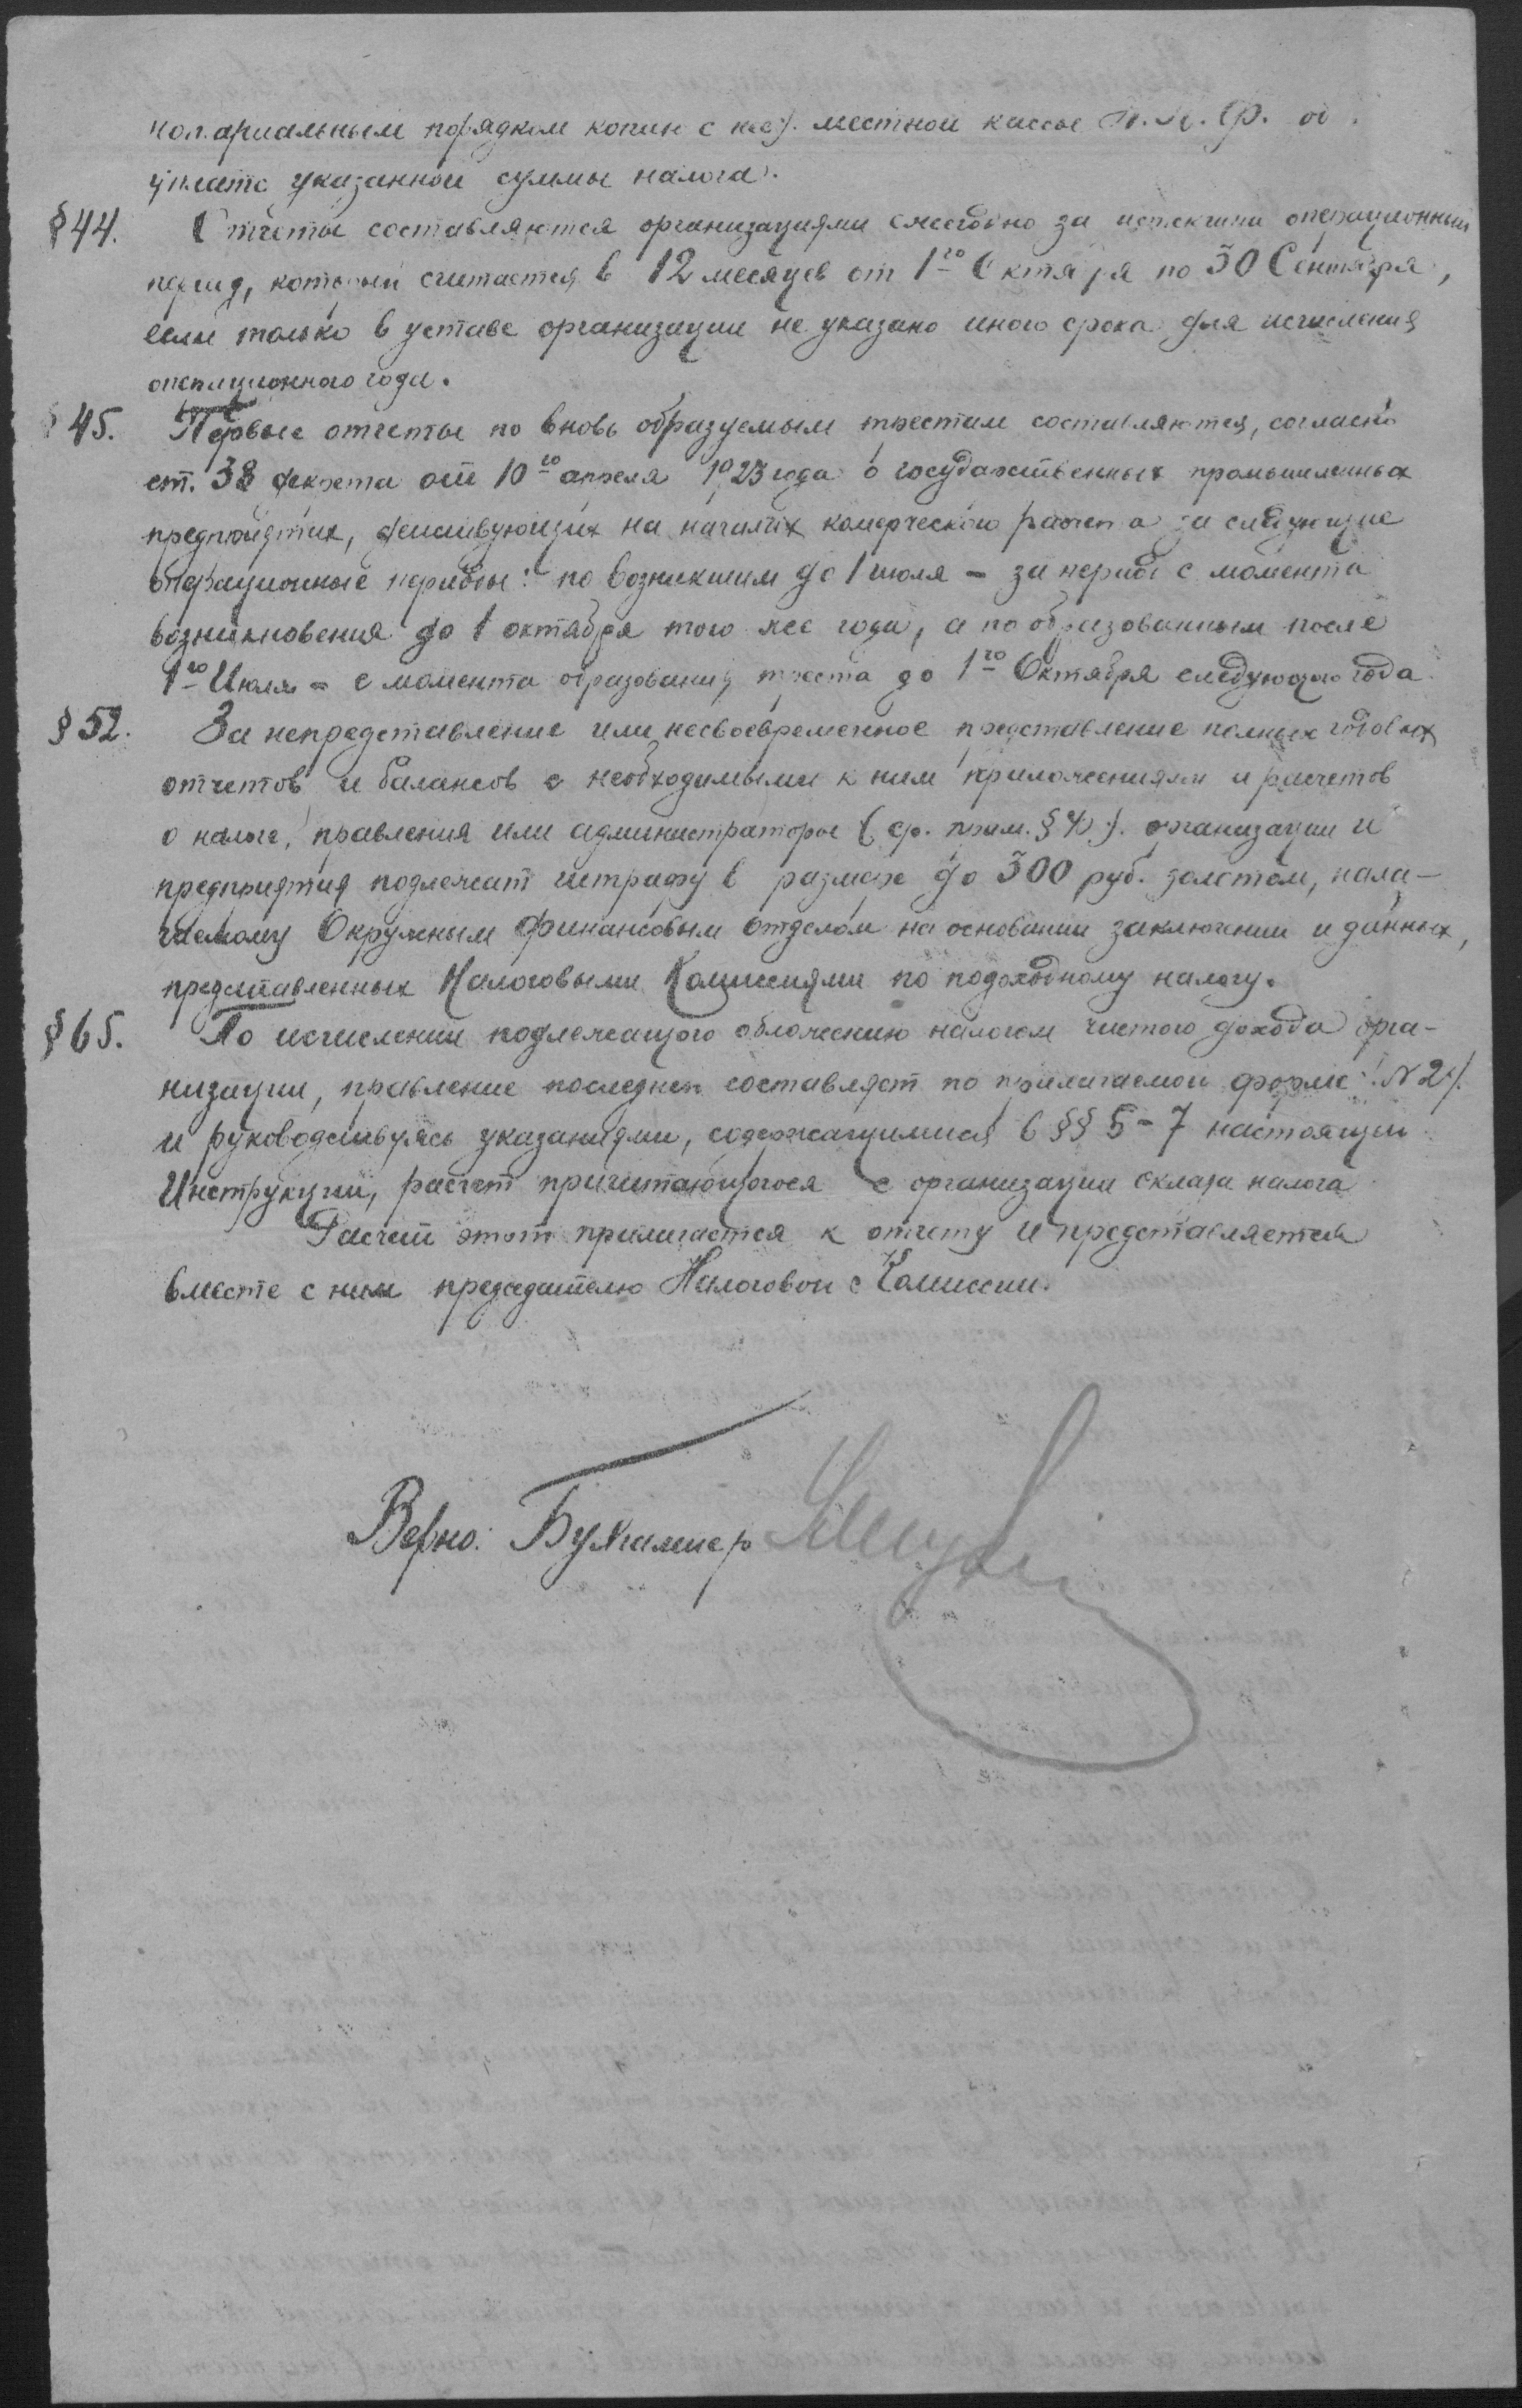 нотариальным порядком копии с нее). местной кассы Н.К.Ф. об
уплате указанной суммы налога).
§44. Отчеты составляются организациями ежегодно за истекший операционный
период, который считается в 12 месяцев от 1го Октября по 30 Сентября,
если только в уставе организации не указано иного срока для исчисления
операционного года.
§45. Первые отчеты по вновь образуемым трестам составляются, согласно
ст. 38 декрета от 10го апреля 1923 года о государственных промышленных
предприятиях, действующих на началах комерческого расчета за следующие
операционные периоды: по возникшим до 1 июля - за период с момента
возникновения до 1 октября того же года, а по образованным после
1го Июля - с момента образования треста до 1го Октября следующего года
§52. За непредставление или несвоевременное представление полных годовых
отчетов и балансов с необходимыми к ним приложениями и расчетов
о налоге, правления или администраторы (ср. прим. § 4). организации и
предприятия подлежат штрафу в размере до 300 руб. золотом, нала-
гаемому Окружным финансовым отделом на основании заключении и данных,
представленных Налоговыми Комиссиями по подоходному налогу.
§65. По исчислении подлежащего обложению налогом чистого дохода орга-
низации, правление последней составляет по прилагаемой форме (N2).
и руководствуясь указаниями, содержащимися в §§ 5-7 настоящей
Инструкции, расчет причитающегося с организации оклада налога
Расчет этот прилагается к отчету и представляется
вместе с ним председателю Налоговой Комиссии.
Верно: Бухгалтер